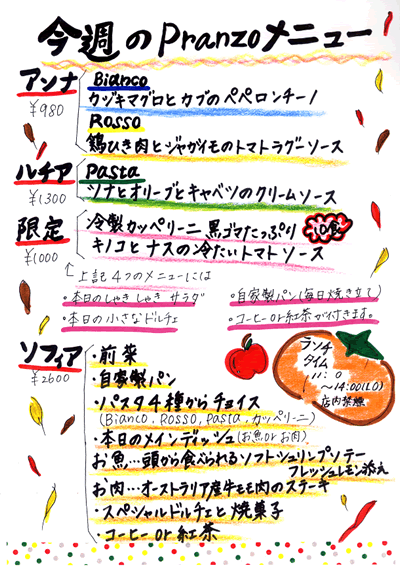 今週のPranzoメニュー
アンナ
¥980
Bianco
カジキマグロとカブのペペロンチーノ
Rosso
鶏ひき肉とジャガイモのトマトラグーソース
ルチア
¥1300
Pasta
ツナとオリーブとキャベツのクリームソース
限定
¥1000
冷製カッペリーニ 黒ゴマたっぷり 10食
キノコとナスの冷たいトマトソース
↑上記4つのメニューには
・本日のしゃきしゃきサラダ
・自家製パン(毎日焼き立て)
・本日の小さなドルチェ
・コーヒーor紅茶が付きます。
ソフィア
¥2600
・前菜
・自家製パン
・パスタ4種からチョイス
(Bianco, Rosso, Pasta, カッペリーニ)
・本日のメインディッシュ(お魚orお肉)
お魚…頭から食べられるソフトシュリンプソテー
フレッシュレモン添え
お肉…オーストラリア産牛モモ肉のステーキ
・スペシャルドルチェと焼菓子
・コーヒーor紅茶
ランチ
タイム
11:0
～14:00(LO)
店内禁煙